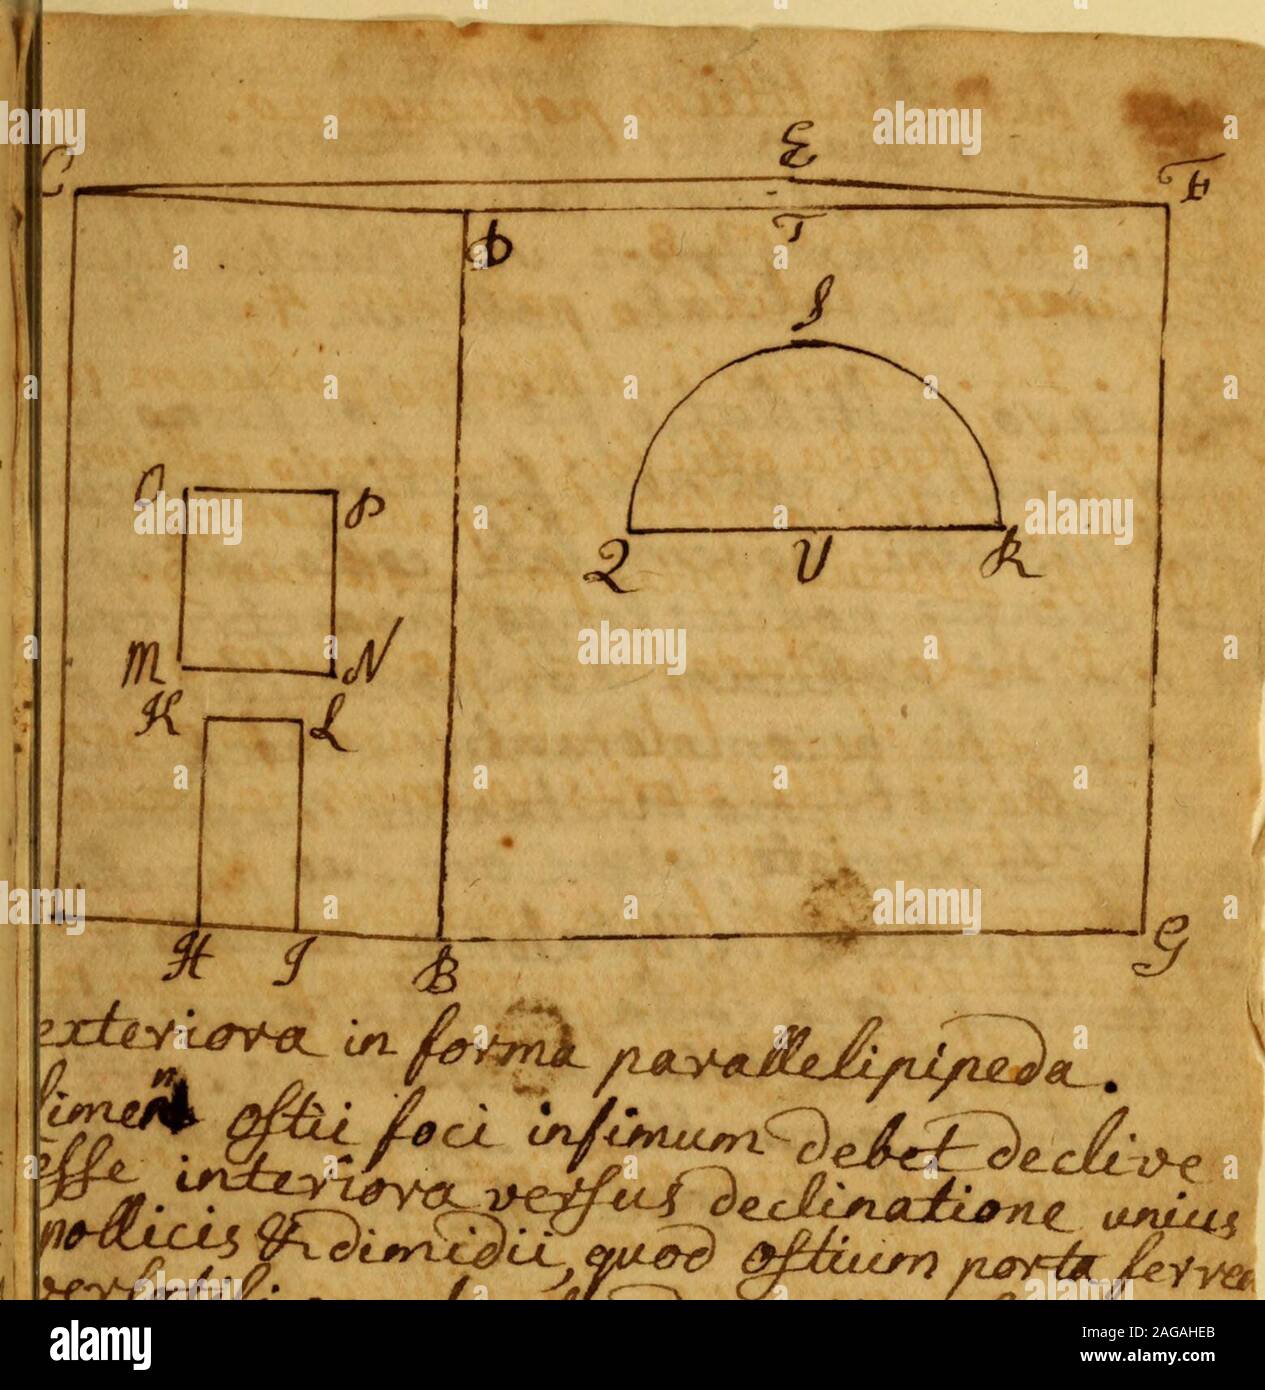 E
C F
D T
S
O P
Q U R
M N
K L
H I B G
exteriora in forma parallelipipeda.
limen ostii foci infimum debet declive
esse interiora versus declinatione unius
pollicis & dimidii, quod ostium porta ferrea
alamy
Image ID: 2AGAHEB
www.alamy.com